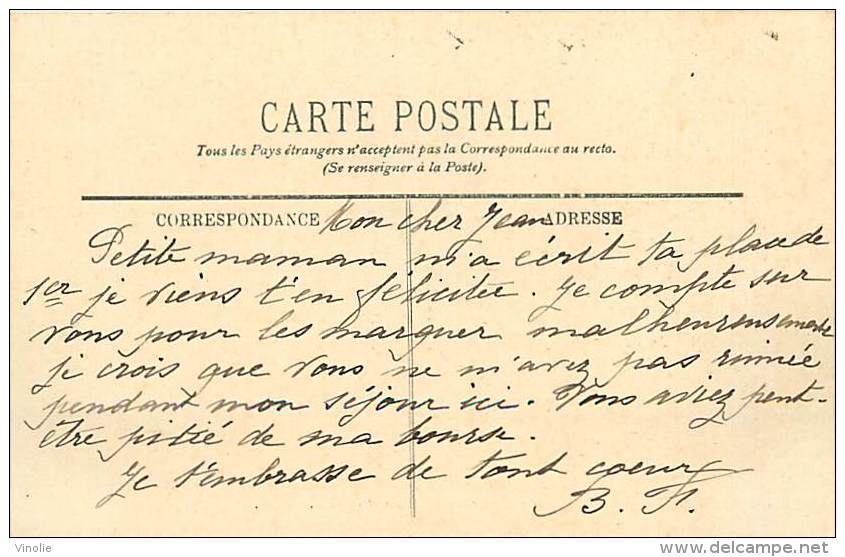 CARTE POSTALE
Tous les Pays étrangers n'acceptent pas la Correspondance au recto.
(Se renseigner à la Poste).
CORRESPONDANCE Mon cher Jean ADRESSE
Petite maman m'a écrit ta place de
1er je viens t'en félicitée. Je compte sur
vous pour les marquer malheureusement
je crois que vous ne m'avez pas ruinée
pendant mon séjour ici. Vous aviez peut-
être pitié de ma bourse.
Je t'embrasse de tout coeur
B. F.
Vinolie
delcampe.net